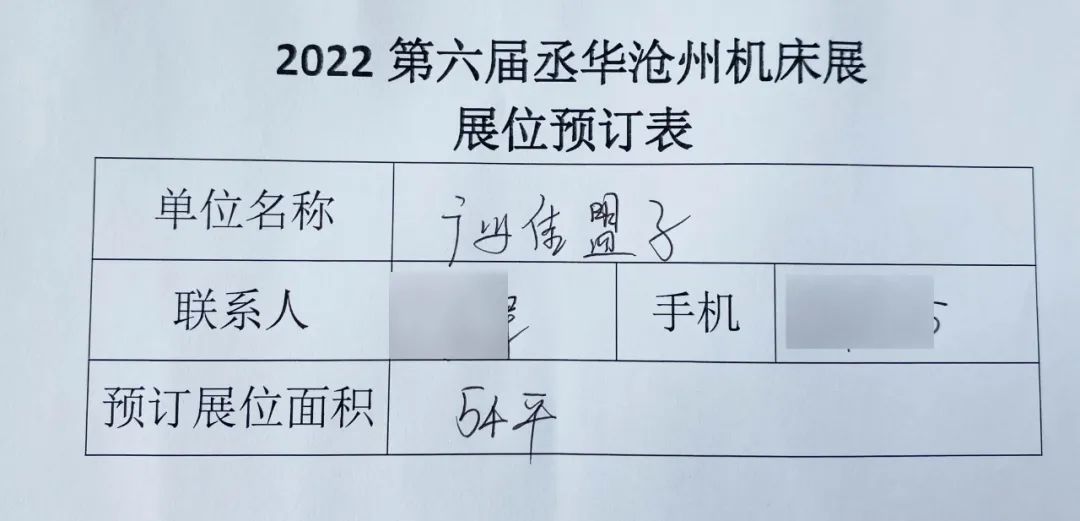 2022 第六届丞华沧州机床展
展位预订表
单位名称 广州佳盟子
联系人 手机
预订展位面积 54平